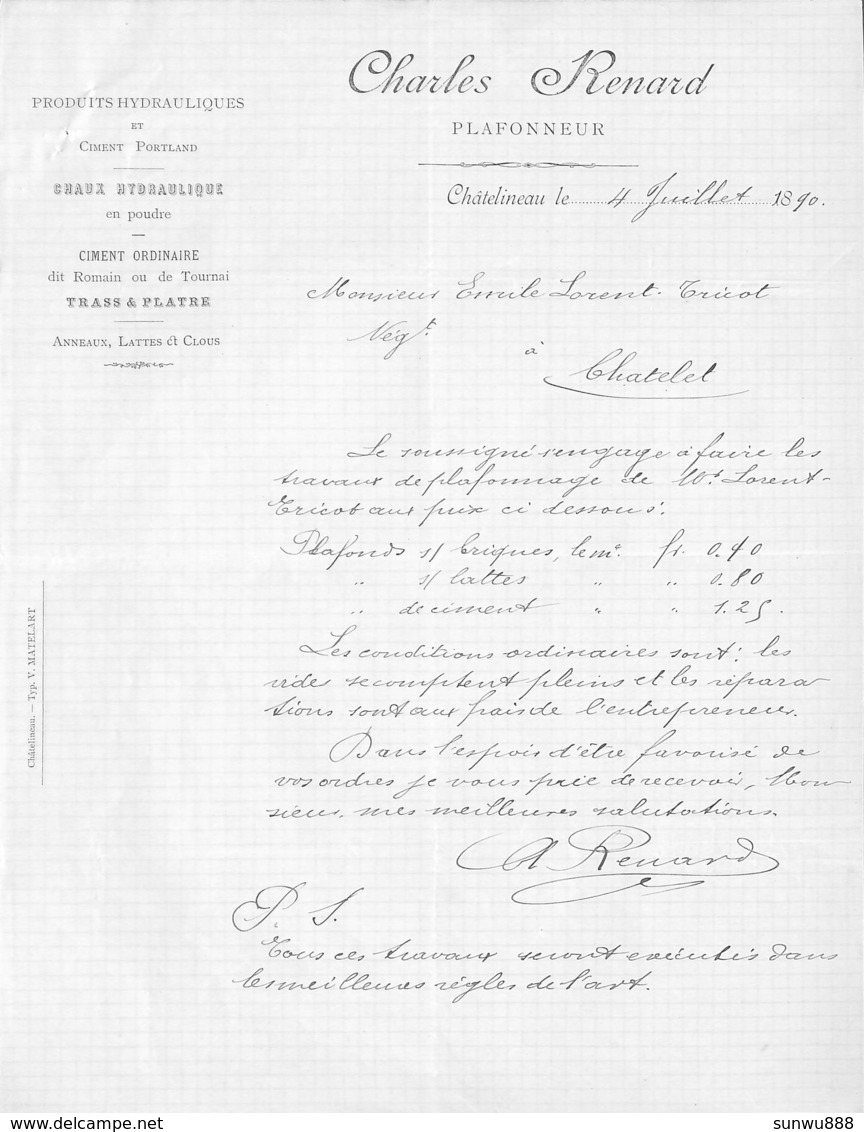 Charles Renard
PLAFONNEUR
PRODUITS HYDRAULIQUES
ET
CIMENT PORTLAND
CHAUX HYDRAULIQUE
en poudre
CIMENT ORDINAIRE
dit Romain ou de Tournai
TRASS & PLATRE
ANNEAUX, LATTES et CLOUS
Châtelineau le 4 Juillet 1890.
Monsieur Emile Lorent-Tricot
Négt.
à
Chatelet
Le soussigné s'engage à faire les
travaux de plafonnage de Mr. Lorent-
Tricot aux prix ci dessous:
Plafonds s/ briques, le m². fr. 0.40
" s/ lattes " " 0.80
" de ciment " " 1.25.
Les conditions ordinaires sont: les
vides se comptent pleins et les répara
tions sont aux frais de l'entrepreneur.
Dans l'espoir d'être favorisé de
vos ordres je vous prie de recevoir, Mon
sieur, mes meilleures salutations.
Renard
P. S.
Tous ces travaux seront exécutés dans
les meilleures règles de l'art.
Châtelineau. — Typ. V. MATELART
delcampe.net
sunwu888